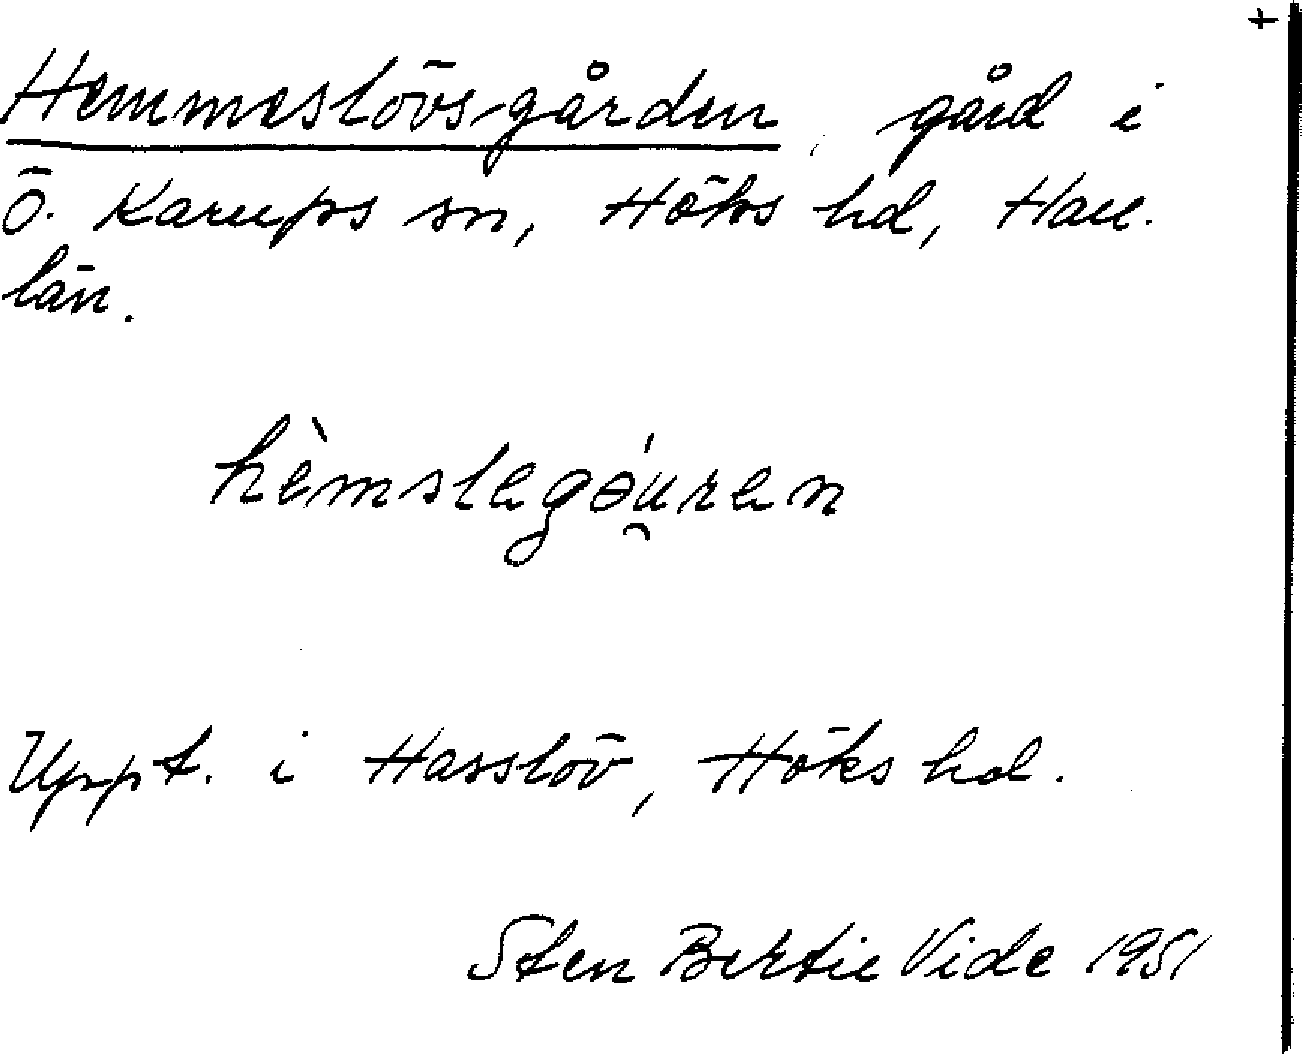 +
Hemmeslövsgården, gård i
Ö. Karups sn, Höks hd, Hall.
län.
hèmslegǿu̯ren
Uppt. i Hasslöv, Höks hd.
Sten Bertil Vide 1951